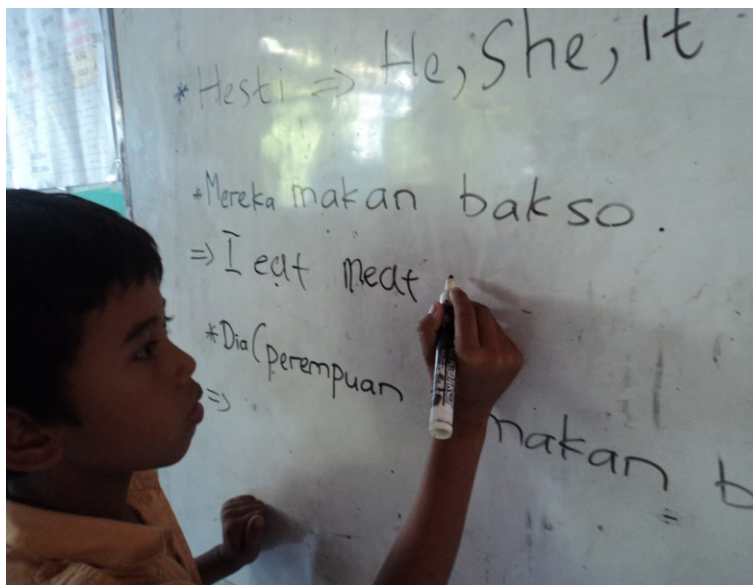 *Hesti => He, She, It
*Mereka makan bakso.
=> I eat meat
*Dia (perempuan makan b
=>